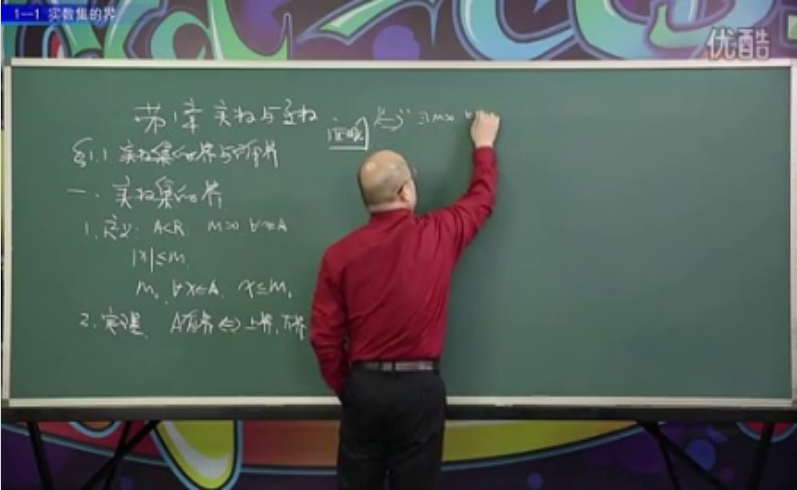 1--1 实数集的界
优酷
第1章 实数与函数
§1.1 实数集的界与确界
一、实数集的界
1. 定义: A⊂R, M>0 ∀x∈A
|x|≤M.
M, ∀x∈A, x≤M,
2. 定理. A有界⇔上界,下界
证明 "⇒" ∃M>0 ∀